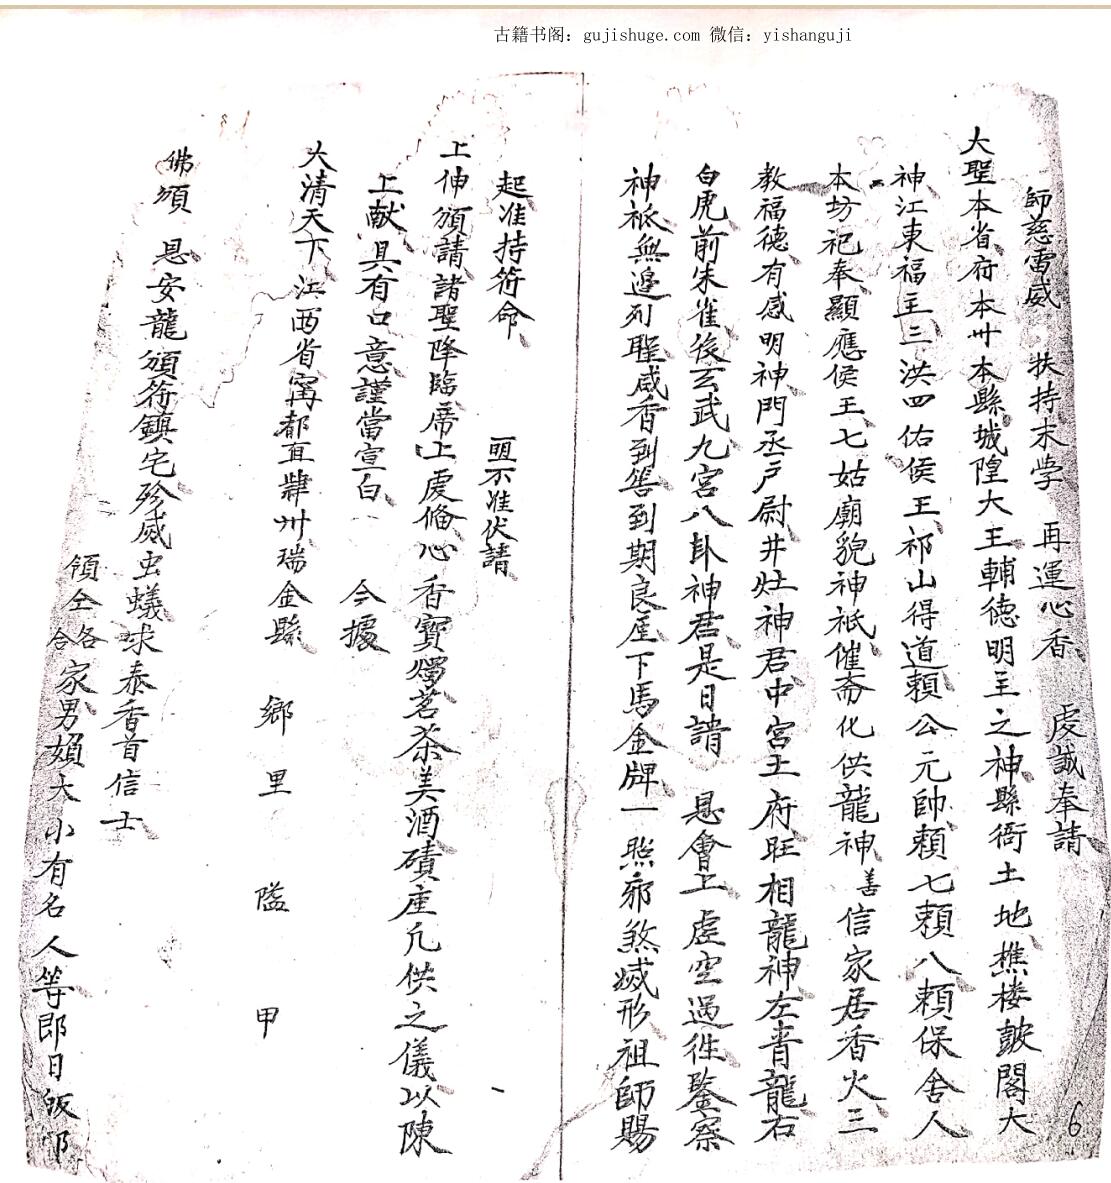 古籍书阁：gujishuge.com 微信：yishanguji
師慈雷威 扶持末学 再運心香 虔誠奉請
大聖本省府本卅本縣城隍大王輔德明王之神縣衙土地樵楼皷閣大
神江東福主三洪四佑侯王祁山得道頼公元帥頼七頼八頼保舍人
本坊祀奉顯應侯王七姑廟貌神祇催斋化供龍神善信家居香火三
教福德有感明神門丞户尉井灶神君中宮土府旺相龍神左青龍右
白虎前朱雀後玄武九宮八卦神君是日請 恳會上虛空過徃鑒察
神祇無邉列聖咸香到筶到期良屋下馬金牌一照邪煞滅形祖師賜
6
起准持符命 亘不准伏請
上伸頒請諸聖降臨席上虔俻心香寳燭茗茶美酒磧座凢供之儀以陳
上献具有口意謹當宣白 今據
大清天下江西省寧都直肆卅瑞金縣 鄉里隘甲
佛頒恩安龍頒符鎮宅殄滅虫蟻求泰香首信士
領仝各合家男嬪大小有名人等即日皈